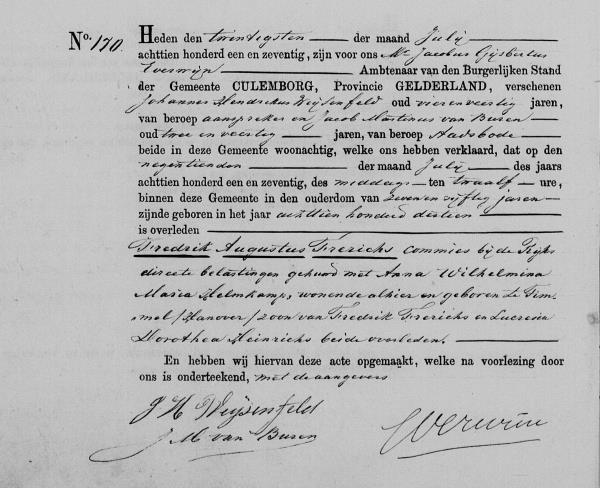 No. 170. Heden den twintigsten de maand July
achttien honderd een en zeventig, zijn voor ons Mr. Jacobus Gijsbertus
Everwijn Ambtenaar van den Burgerlijken Stand
der Gemeente CULEMBORG, Provincie GELDERLAND, verschenen
Johannes Hendrikus Weijsenfeld oud vierenveertig jaren,
van beroep aanspreker en Jacob Martinus van Buren
oud twee en veertig jaren, van beroep stadsbode
beide in deze Gemeente woonachtig, welke ons hebben verklaard, dat op den
negentienden der maand July des jaars
achttien honderd een en zeventig, des middags ten twaalf ure,
binnen deze Gemeente in den ouderdom van zeven en vijftig jaren
zijnde geboren in het jaar achttien honderd dertien
is overleden
Fredrik Augustus Frerichs commies bij de Rijks
directe belastingen gehuwd met Anna Wilhelmina
Maria Helmkamp, wonende alhier en geboren te Tim-
mel /Hanover/ zoon van Fredrik Frerichs en Lucresia
Dorothea Heinrichs beide overleden.
En hebben wij hiervan deze acte opgemaakt, welke na voorlezing door
ons is onderteekend, met de aangevers
J H Weijsenfeld
J. M. van Buren
Everwijn